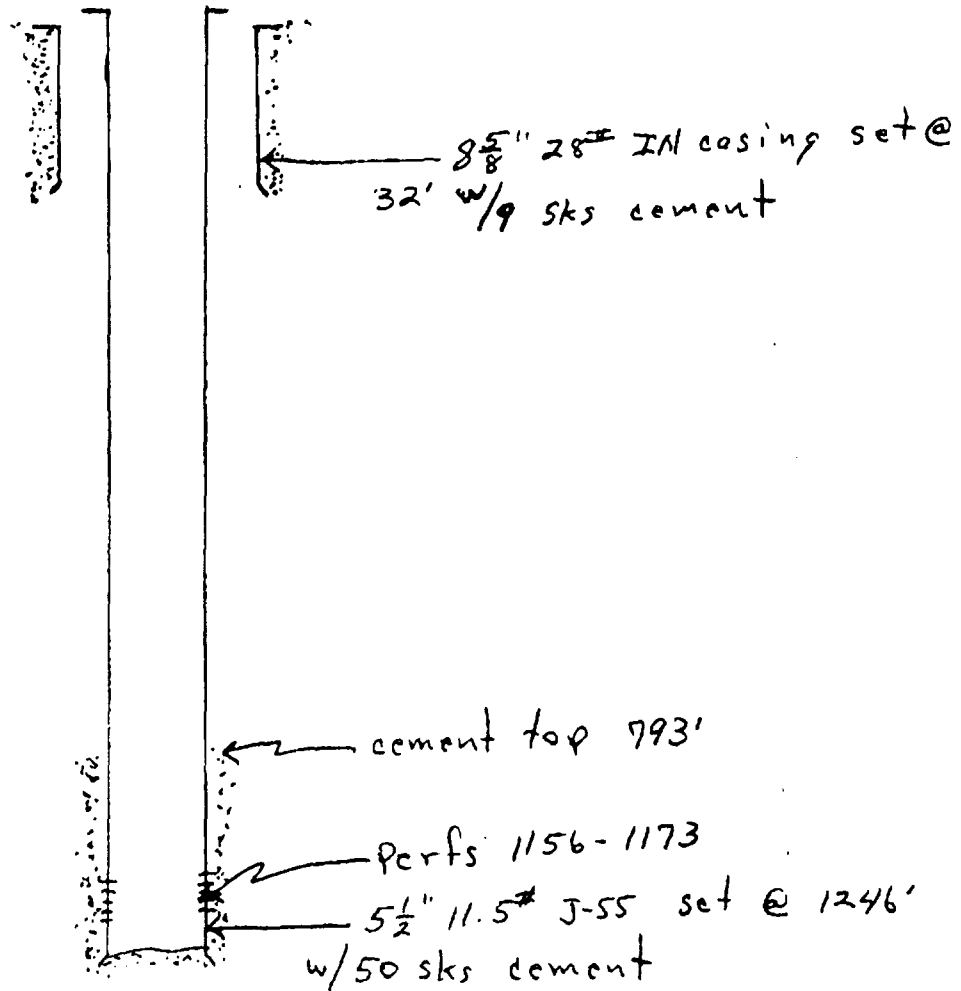 8 5/8" 28# IN casing set @
32' w/9 sks cement
cement top 793'
Perfs 1156-1173
5 1/2" 11.5# J-55 set @ 1246'
w/50 sks cement